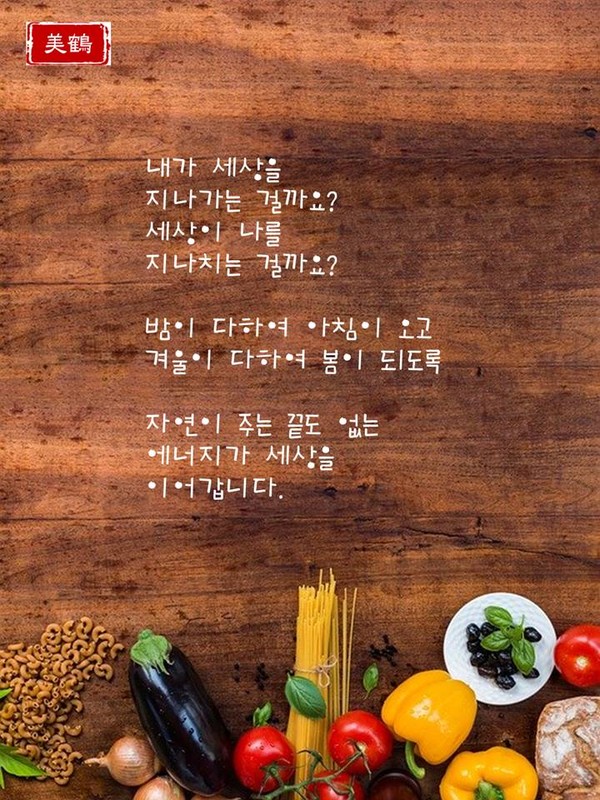 美鶴
내가 세상을
지나가는 걸까요?
세상이 나를
지나치는 걸까요?
밤이 다하여 아침이 오고
겨울이 다하여 봄이 되도록
자연이 주는 끝도 없는
에너지가 세상을
이어갑니다.